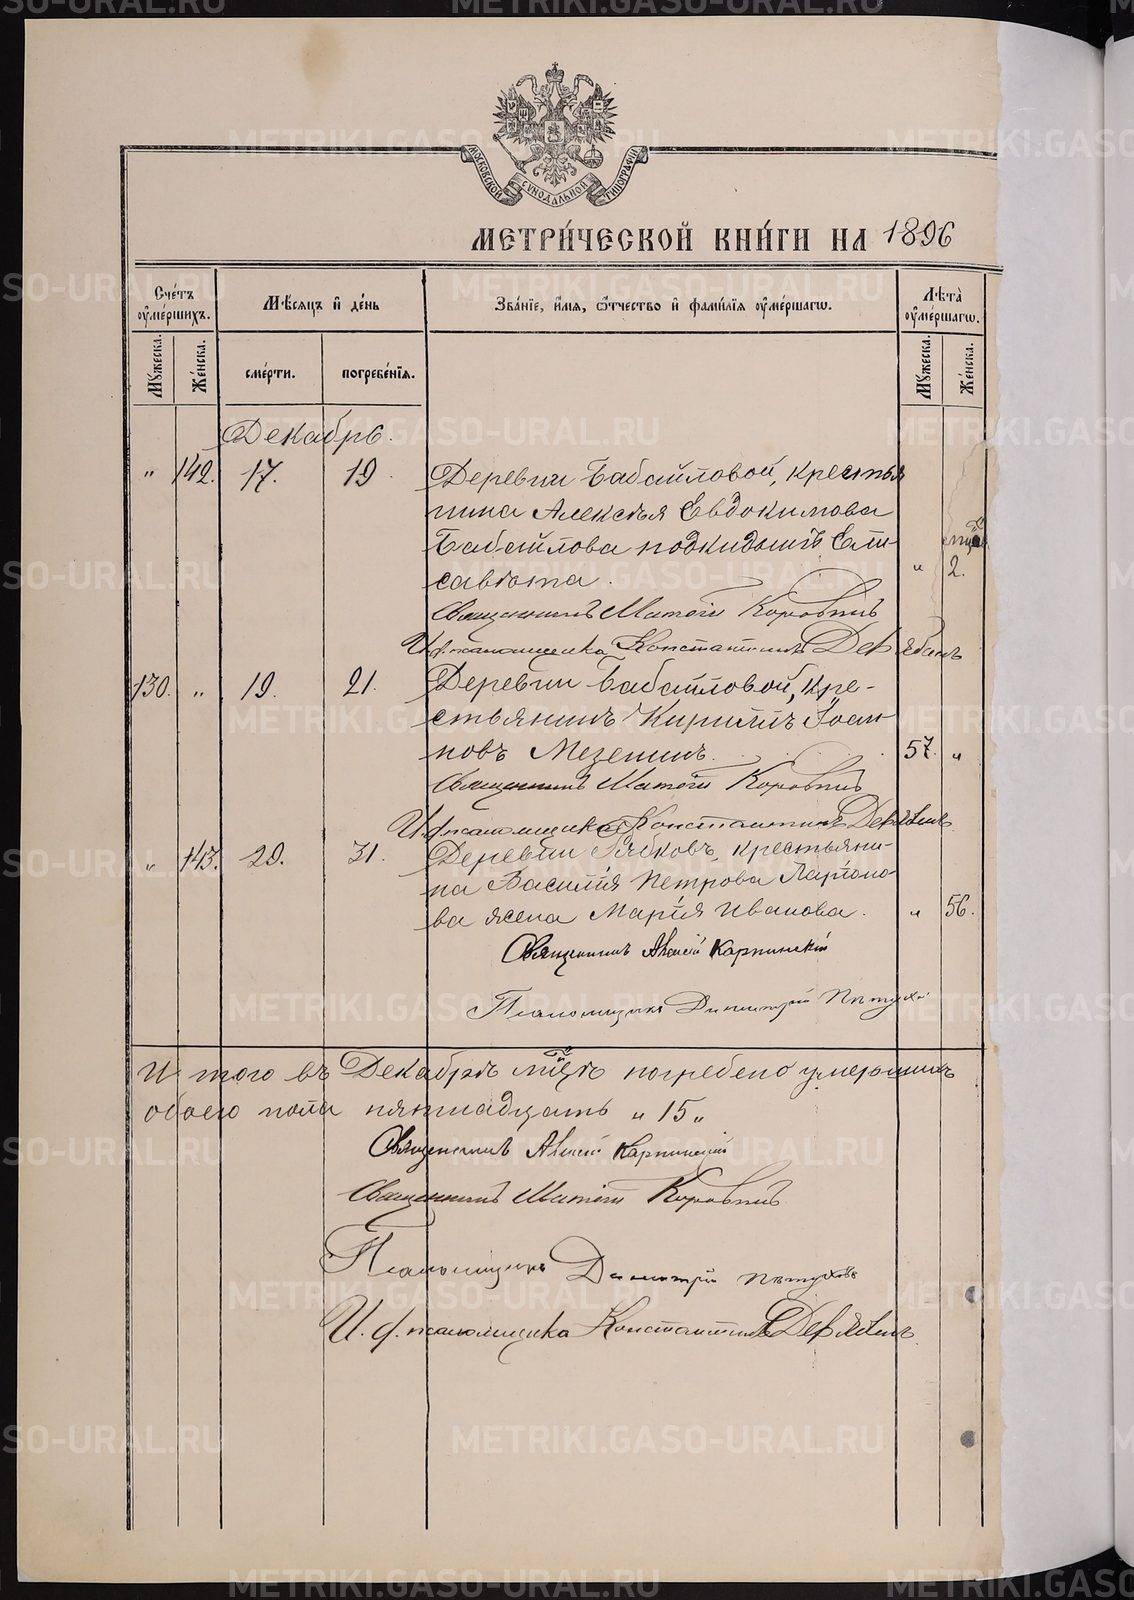 МОСКОВСКОЙ СУНОДАЛЬНОЙ ТИПОГРАФІИ
МЕТРИ́ЧЕСКОЙ КНИ́ГИ НА 1896
Сче́тъ оу҆ме́ршихъ.
Мѣ́сяцъ и҆ де́нь
Зва́нїе, и҆́мя, ѻ҆́тчество и҆ фами́лїя оу҆ме́ршагѡ.
Лѣ́та оу҆ме́ршагѡ.
Мꙋ́жеска.
Же́нска.
сме́рти.
погребе́нїя.
Мꙋ́жеска.
Же́нска.
Декабрь.
" 142. 17. 19. Деревни Бабайловой, крестья
нина Алексѣя Евдокимова
Бабайлова подкидышъ Ели
савета. " мѣсяц. 2.
Священникъ Матѳій Коровинъ
И.ф.псаломщика Константинъ Дерябинъ
130. " 19. 21. Деревни Бабайловой, кре-
стьянинъ Кириллъ Іоан
новъ Мезенинъ. 57. "
Священникъ Матѳій Коровинъ
И.ф.псаломщика Константинъ Дерябинъ
" 143. 29. 31. Деревни Рябковъ, крестьяни-
на Василія Петрова Ларіоно-
ва жена Марія Иванова. " 56.
Священникъ Алексій Карпинскій
Псаломщикъ Димитрій Пѣтухо
И того въ Декабрѣ мцѣ погребено умершихъ
обоего пола пятнадцать " 15 "
Священникъ Алексій Карпинскій
Священникъ Матѳій Коровинъ
Псаломщикъ Димитрій Пѣтуховъ
И.ф.псаломщика Константинъ Дерябинъ
METRIKI.GASO-URAL.RU